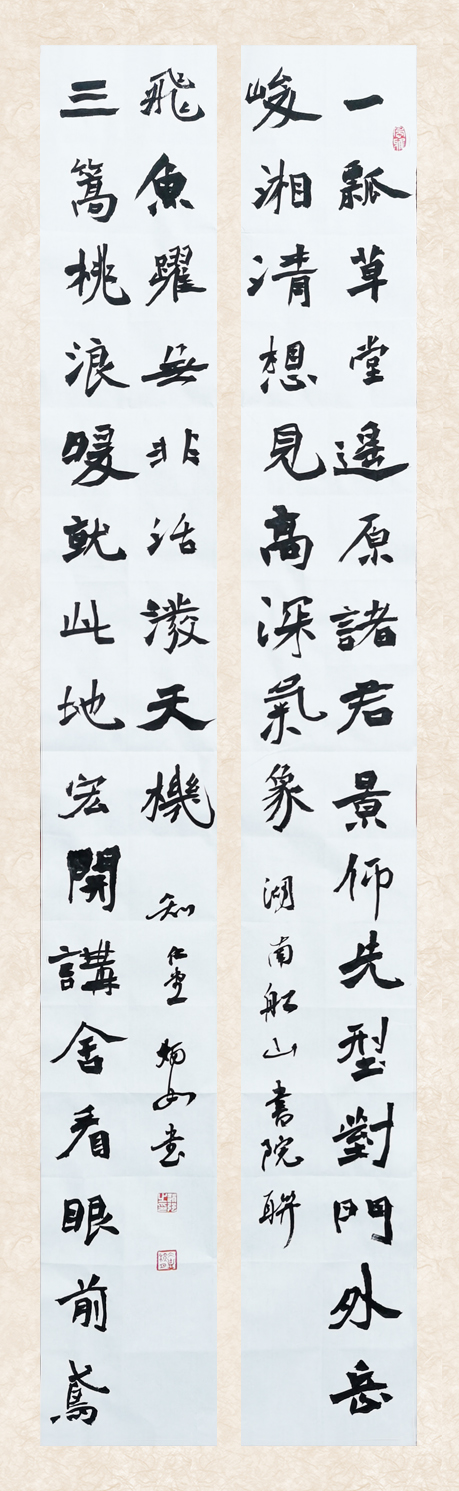 一瓢草堂遙原諸君景仰先型對門外岳
峻湘清想見高深氣象 湖南船山書院聯
三篙桃浪暖就此地宏開講舍看眼前鳶
飛魚躍無非活潑天機 知仁堂 書